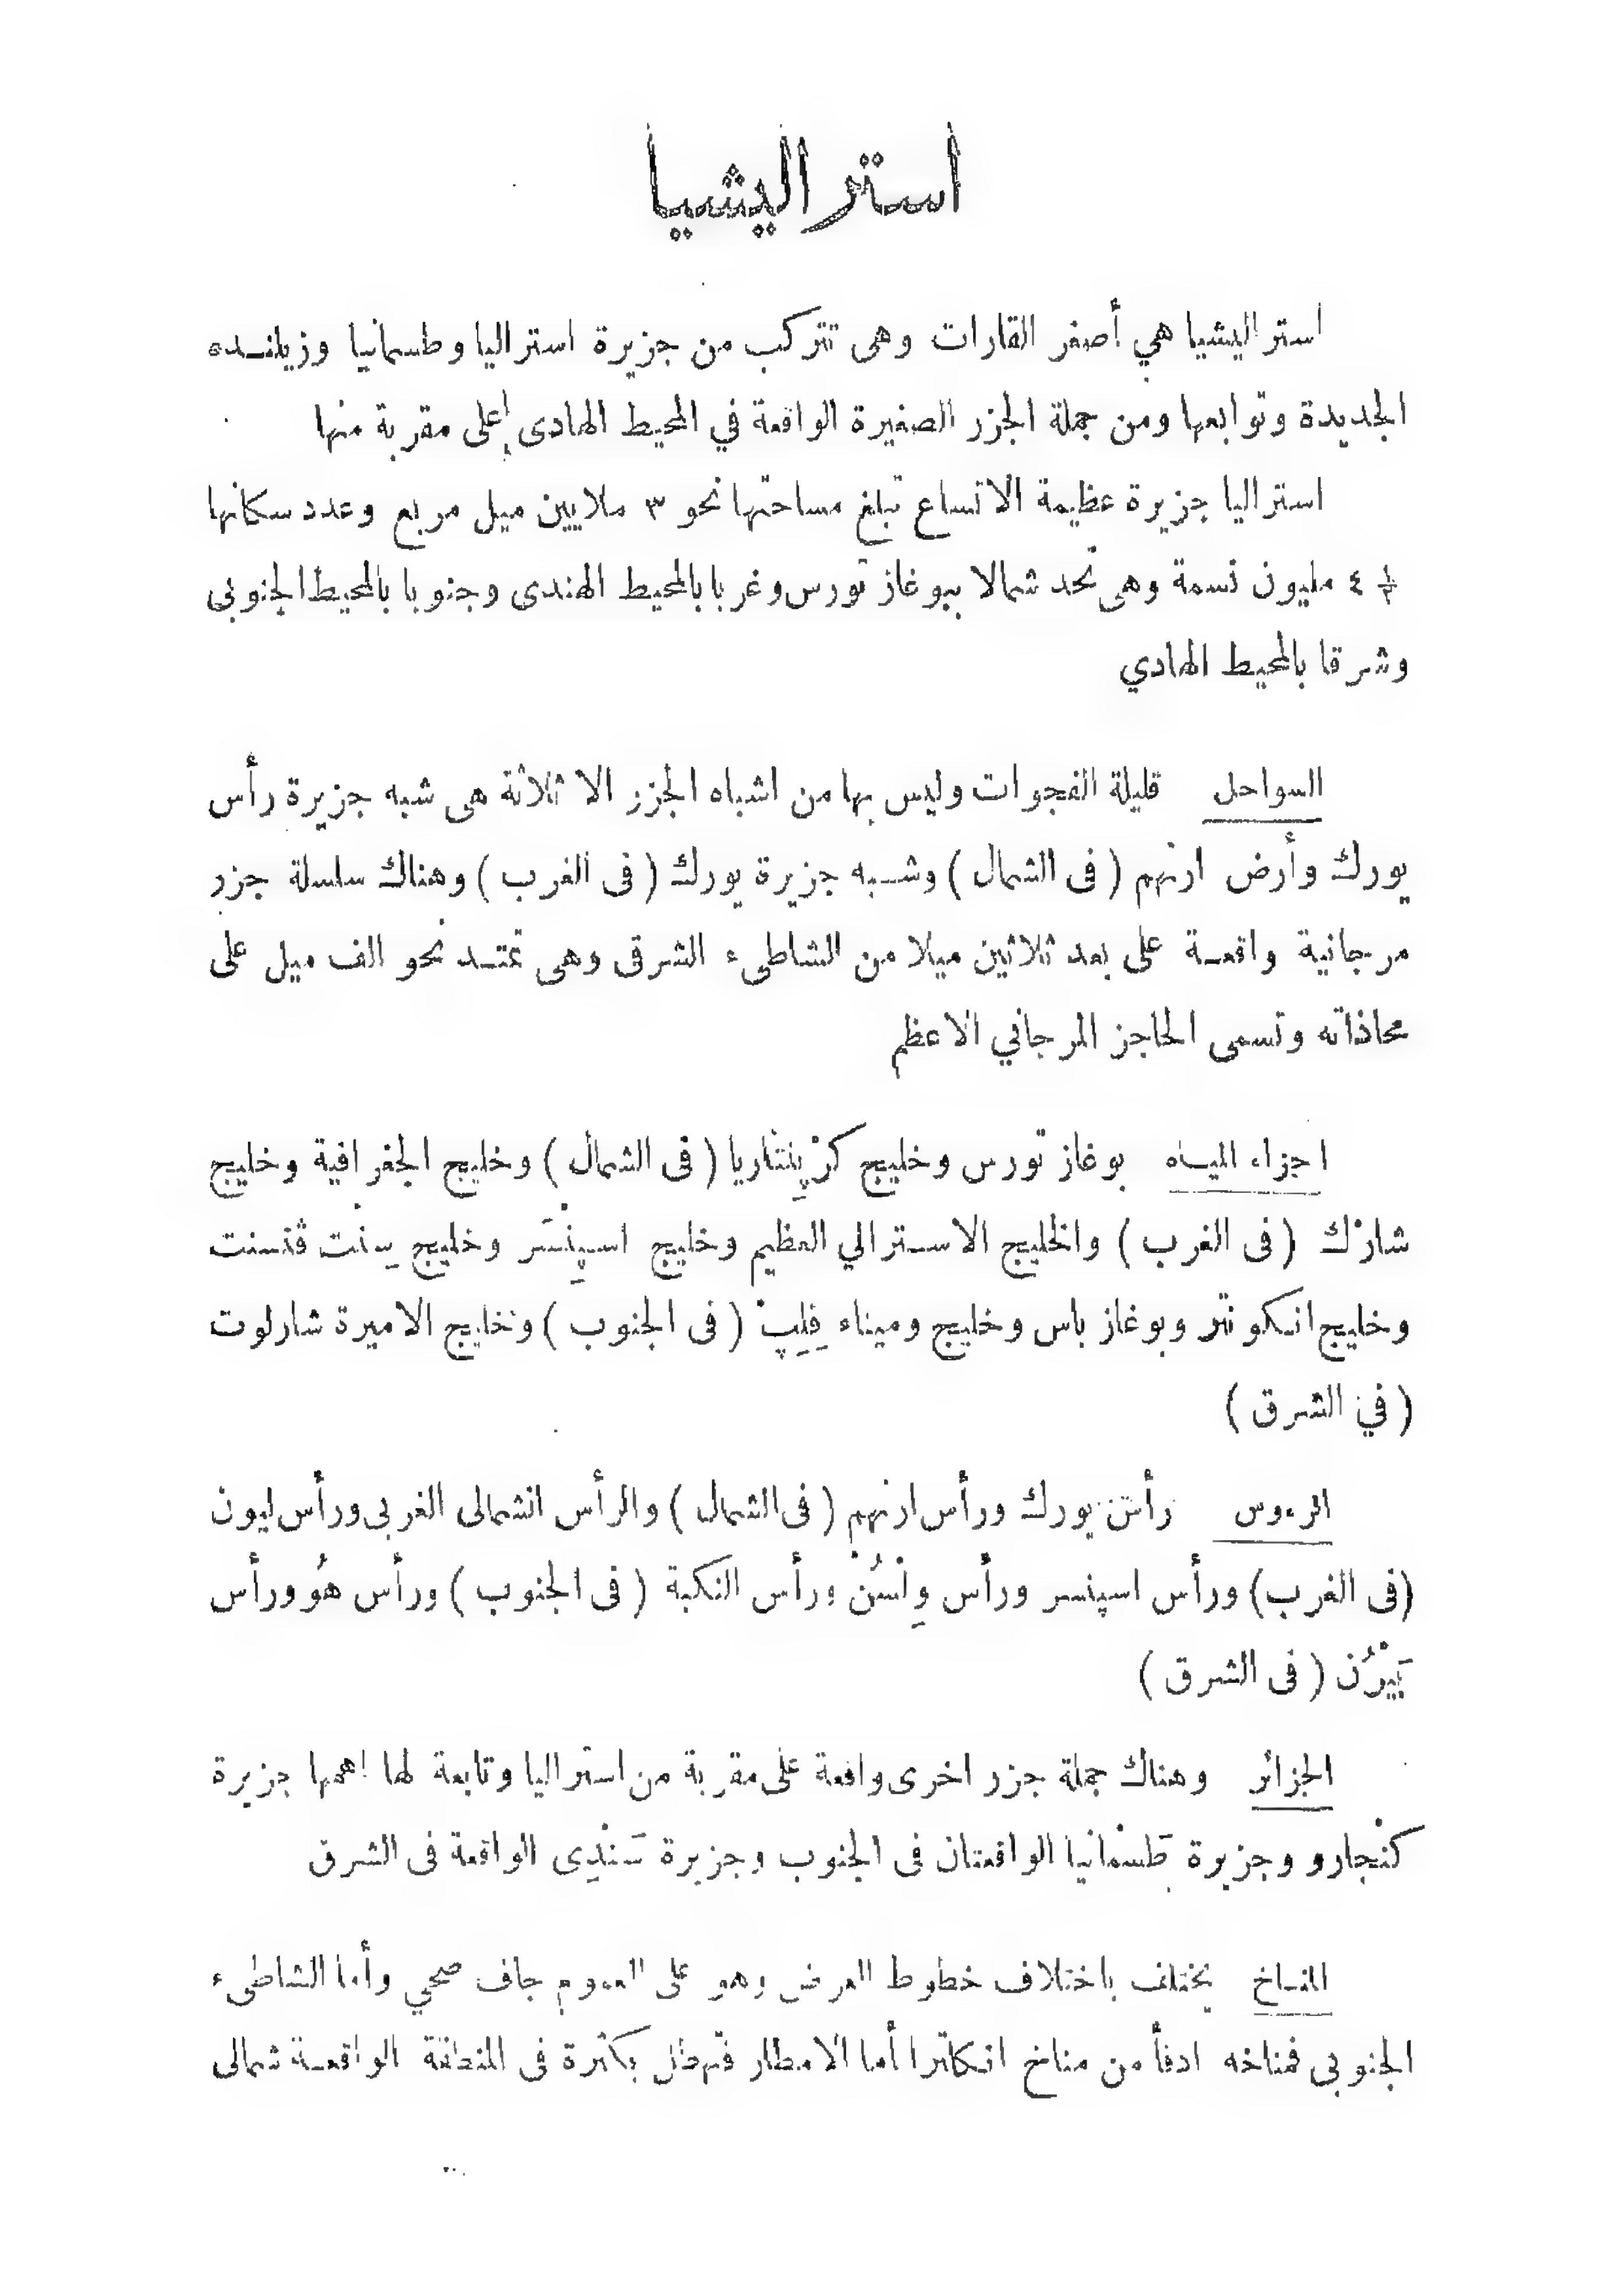 استراليشيا
استراليشيا هي أصغر القارات وهى تتركب من جزيرة استراليا وطسمانيا وزيلنده
الجديدة وتوابعها ومن جملة الجزر الصغيرة الواقعة في المحيط الهادى على مقربة منها
استراليا جزيرة عظيمة الاتساع تبلغ مساحتها نحو ٣ ملايين ميل مربع وعدد سكانها
٤ مليون نسمة وهى تحد شمالا ببوغاز تورس وغربا بالمحيط الهندى وجنوبا بالمحيط الجنوبى
وشرقا بالمحيط الهادي
السواحل قليلة الفجوات وليس بها من اشباه الجزر الا ثلاثة هى شبه جزيرة رأس
يورك وأرض ارنهم ( فى الشمال ) وشبه جزيرة يورك ( فى الغرب ) وهناك سلسلة جزر
مرجانية واقعة على بعد ثلاثين ميلا من الشاطىء الشرقى وهى تمتد نحو الف ميل على
محاذاته وتسمى الحاجز المرجاني الاعظم
اجزاء المياه بوغاز تورس وخليج كرْپِنتاريا ( فى الشمال ) وخليج الجغرافية وخليج
شارْك ( فى الغرب ) والخليج الاسترالي العظيم وخليج اسپِنْسَر وخليج سِنْت ڤنسنت
وخليج انكونتر وبوغاز باس وخليج وميناء فِلِپْ ( فى الجنوب ) وخليج الاميرة شارلوت
( في الشرق )
الرءوس رأس يورك ورأس ارنهم ( فى الشمال ) والرأس الشمالى الغربى ورأس ليون
( فى الغرب ) ورأس اسپنسر ورأس وِلْسُنْ ورأس النكبة ( فى الجنوب ) ورأس هُو ورأس
بَيْرُن ( فى الشرق )
الجزائر وهناك جملة جزر اخرى واقعة على مقربة من استراليا وتابعة لها اهمها جزيرة
كنْجارو وجزيرة طَسْمانيا الواقعتان فى الجنوب وجزيرة سَنْدِى الواقعة فى الشرق
المناخ يختلف باختلاف خطوط العرض وهو على العموم جاف صحي وأما الشاطىء
الجنوبى فمناخه ادفأ من مناخ انكلترا أما الامطار فتهطل بكثرة فى المنطقة الواقعة شمالى